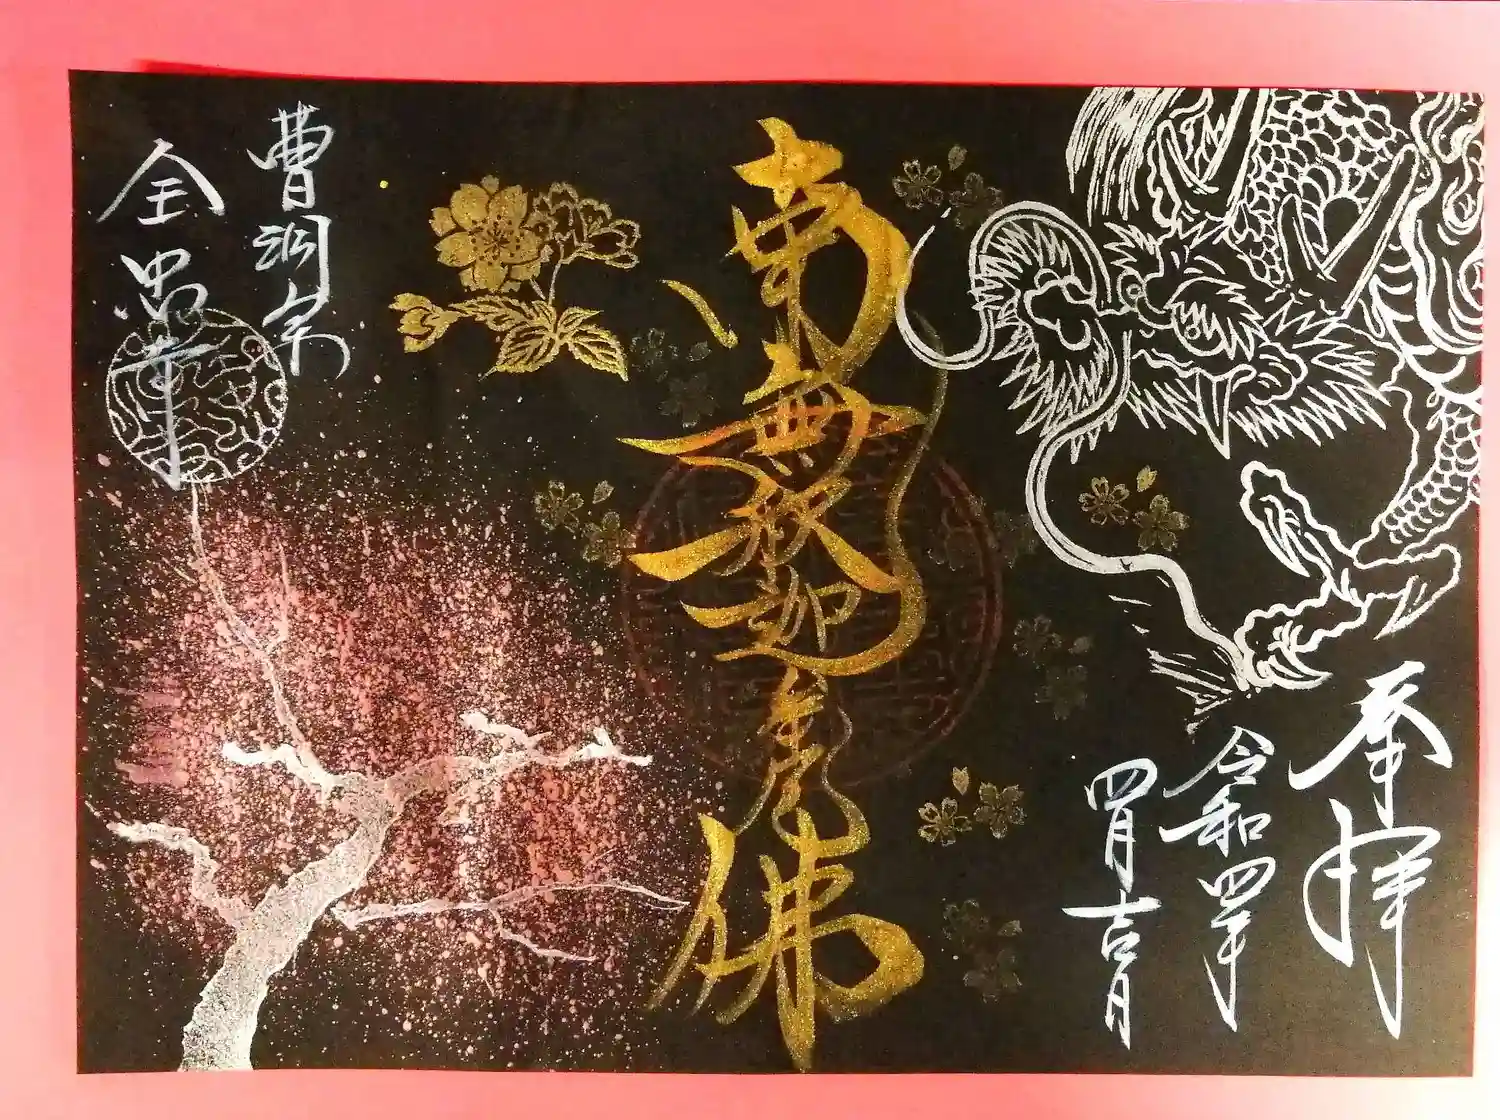 奉拝
令和四年
四月吉日
南無釈迦牟尼佛
曹洞宗
全忠寺